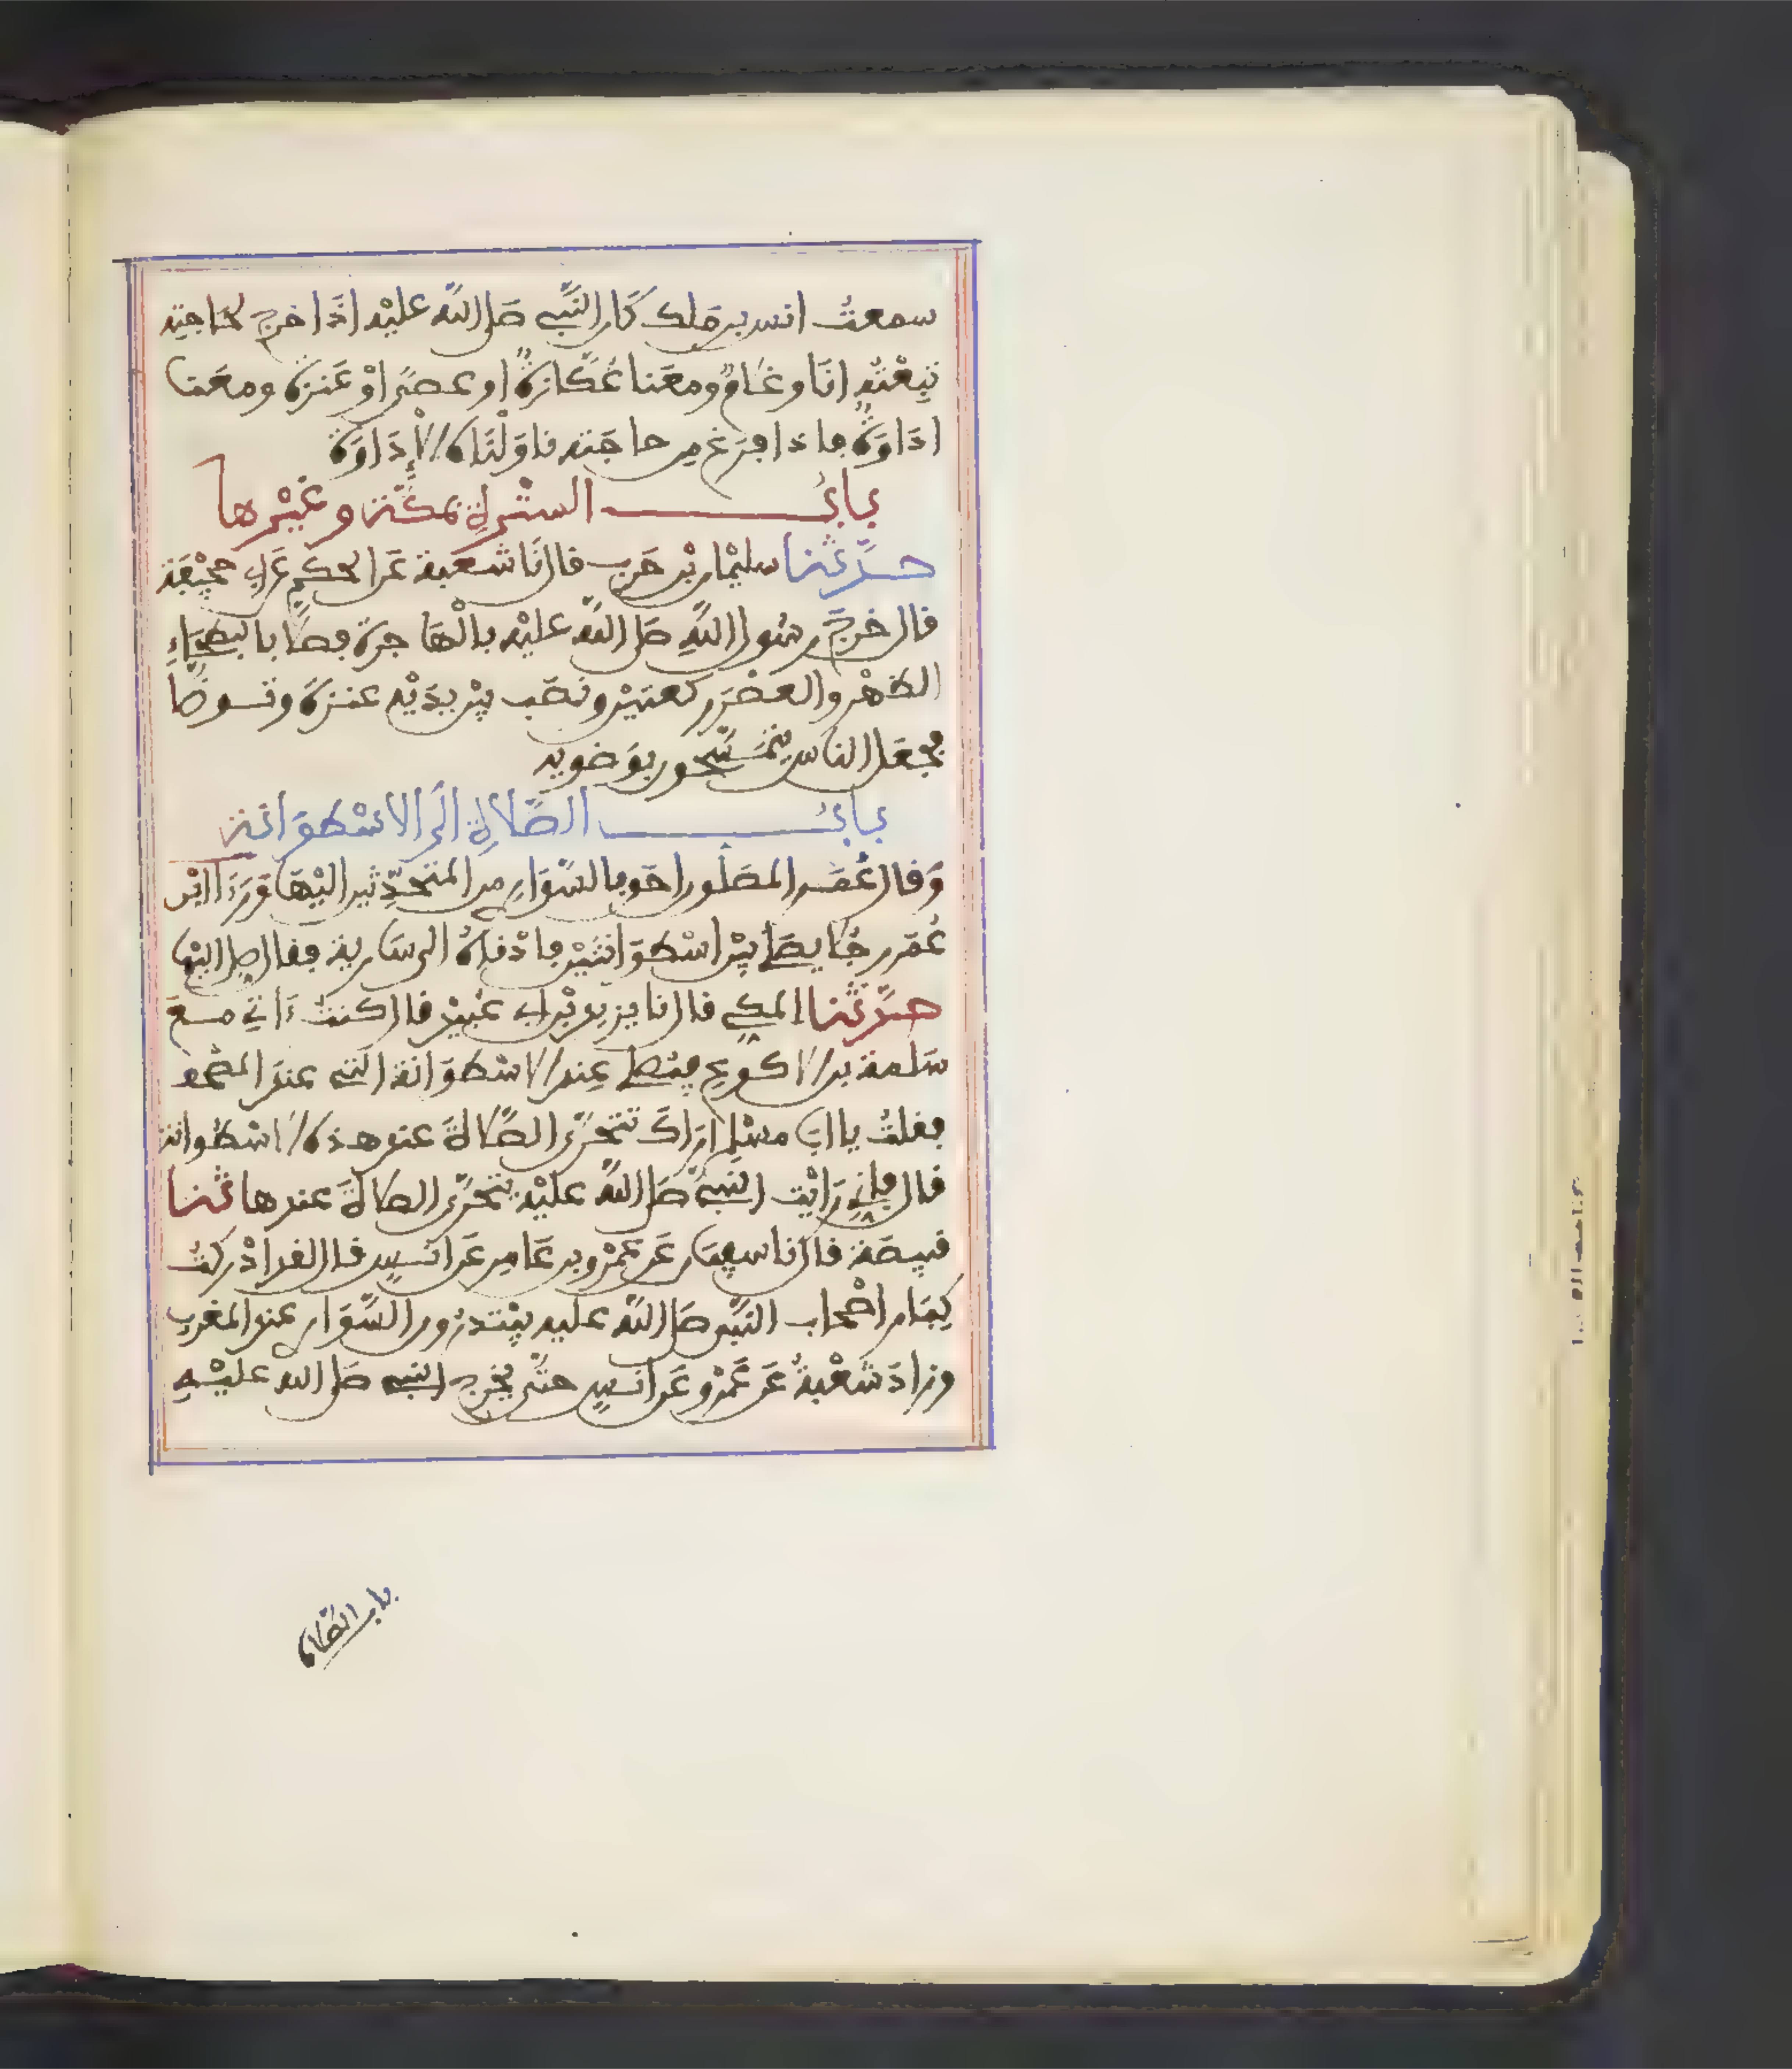 سمعتُ انس بن مَلك كَان النَّبي صَلى اللَّه عليْه اذَا خرج لحَاجتِه
تبِعْتُه انَا وغلَامٌ ومعَنا عُكَّازةٌ او عصًى اوْ عَنزة ومعَنا
ادَاوَةٌ فاذا فرَغ من حاجَته ناوَلْنَاه الإدَاوَة
بابُ السترةِ بمكّة وغيْرها
حدَّثنا سليْمان بْن حَرب قال نَا شعْبة عَن الحكَم عَن ابي جحيْفَة
قال خرج رسُول اللَّهِ صَلى اللَّه عليْه بالْهَاجرة فصلَّى بالبَطْحَاءِ
الظهْر والعَصْر ركعتيْن ونصَب بيْن يدَيْه عنزةً وتوضَّأ
فجعَل الناس يتمَسَّحون بوَضويه
بابُ الصَّلاةِ الَى الاسْطوَانة
وَقال عُمَر المصَلُّون احَق بالسَّوَارِي من المتحَدِّثين اليْهَا وَرَءَا ابْن
عُمَر رجُلا يصَلي بيْن اسْطوَانتَيْن فادْنَاهُ الى سَارية فقال صل اليْها
حدَّثنا المكي قال نا يزيد بْن ابي عُبيْد قال كنتُ ءَاتي مَعَ
سَلمة بن الاكوع فيُصَلي عِند الاسْطوَانة التي عند المصْحف
فقلتُ يا ابَا مسْلم ارَاكَ تتحَرَّى الصَّلاةَ عند هذه الاسْطوانة
قال فإني رَايْت النبيَّ صَلى اللَّه عليْه يتحَرَّى الصلاةَ عندها ثنا
قبيصَة قال نا سفيَان عَن عَمْرو بن عَامر عَن انَسٍ قال لقد ادْركتُ
كِبَار اصْحاب النَّبي صَلى اللَّه عليه يبْتدرُون السَّوَاري عند المغرب
وزادَ شعْبةُ عَن عَمْرو عَن انَسٍ حتَّى يخرج النبي صَلى الله عليْهِ
باب الصَّلاة